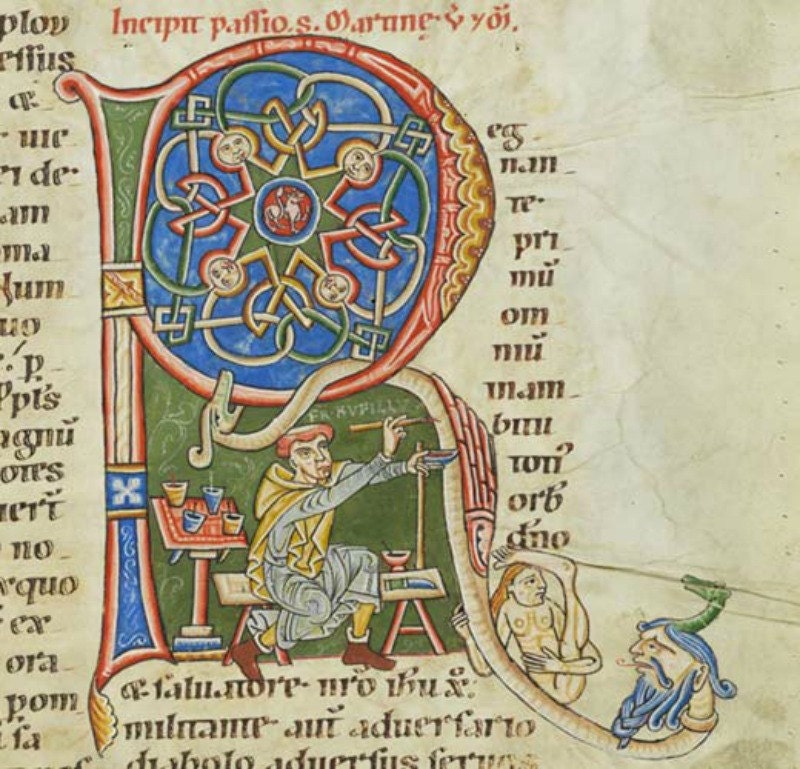 Incipit passio. s. Martine. v̄ 7 m̄.
plou
essus
æ
ei de·
am
oma
uo
p
ppl's
agnū
otes
no
rquo
ex
ora
pom
sa
R
eg
nan
te·
pri
mū
om
niū
inam
bitu
toti᾽
orb
dn̄o
FR RVFILLVS
& saluatore· nr̄o ih̄u x̄.
militante aut̄ aduersario
diabolo aduersus seruos